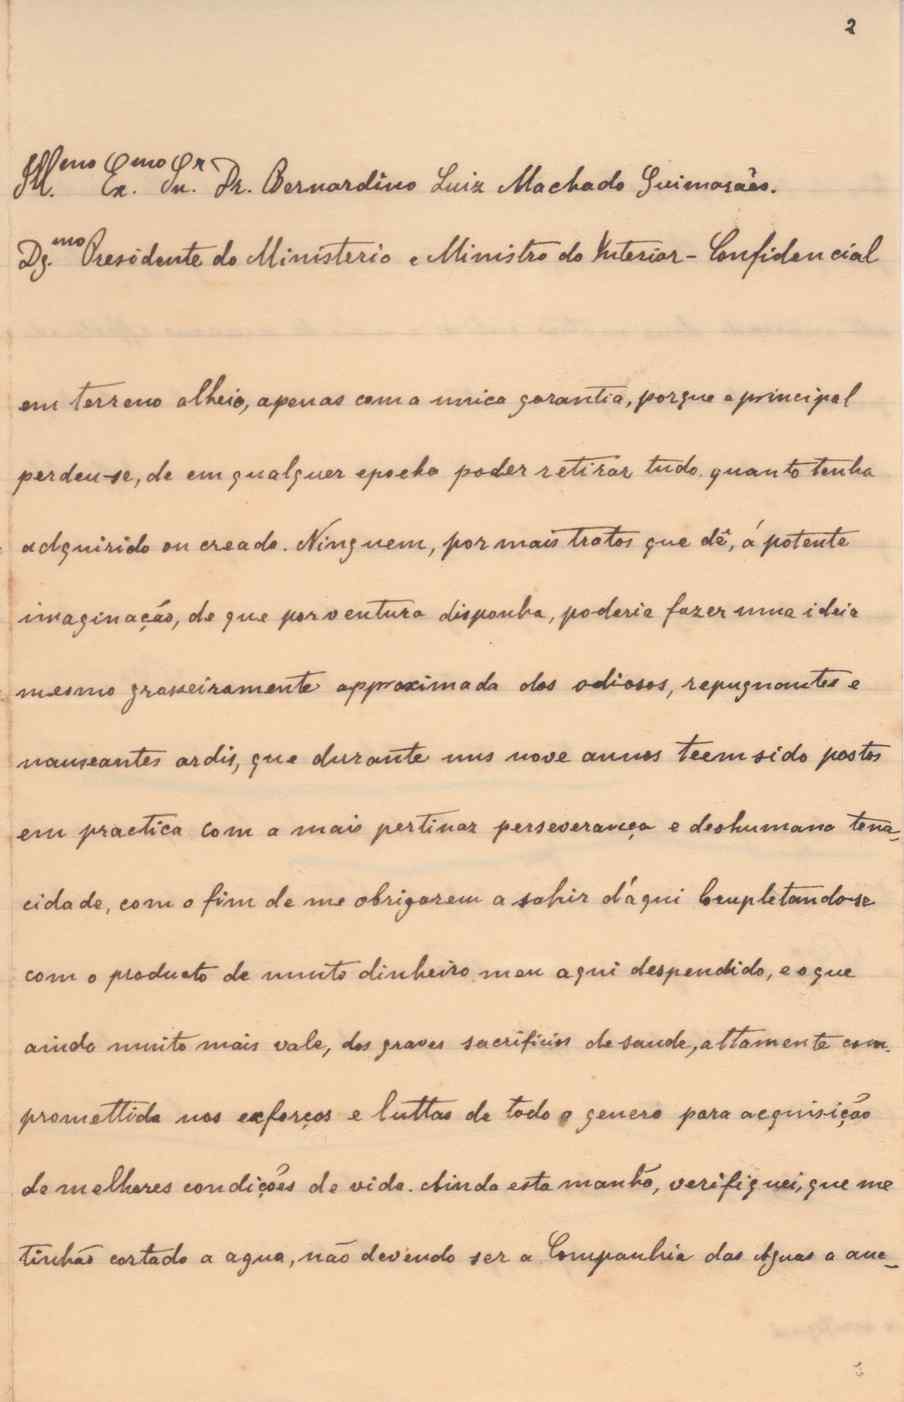 2
Ill.mo Ex.mo Snr. Dr. Bernardino Luiz Machado Guimarães.
Dg.mo Presidente do Ministerio e Ministro do Interior - Confidencial
em terreno alheio, apenas com a unica garantia, porque a principal
perdeu-se, de em qualquer epocha poder retirar tudo quanto tenha
adquirido ou creado. Ninguem, por mais tratos que dê, á potente
imaginação, de que porventura disponha, poderia fazer uma ideia
mesmo grasseiramente approximada dos odiosos, repugnantes e
nauseantes ardis, que durante uns nove annos teem sido postos
em practica com a mais pertinaz perseverança e deshumana tena-
cidade, com o fim de me obrigarem a sahir d'áqui locupletando-se
com o producto de muito dinheiro meu aqui despendido, e o que
ainda muito mais vale, dos graves sacrificios de saude, altamente com-
promettida nos exforços e luttas de todo o genero para acquisição
de melhores condições de vida. Ainda esta manhã, verifiquei, que me
tinhão cortado a agua, não devendo ser a Companhia das Aguas a auc-